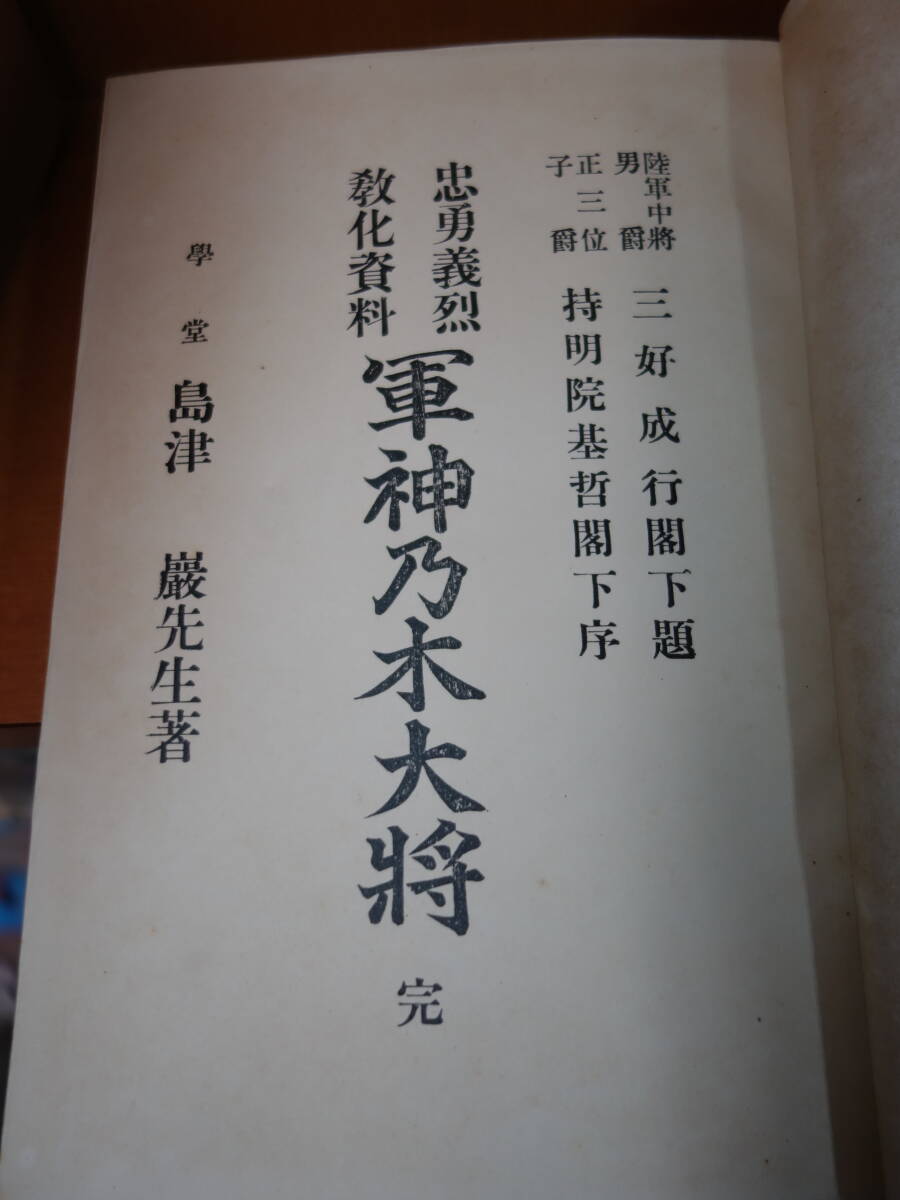 陸軍中將
男爵
三好成行閣下題
正三位
子爵
持明院基哲閣下序
忠勇義烈
敎化資料
軍神乃木大將 完
學堂 島津 巖先生著